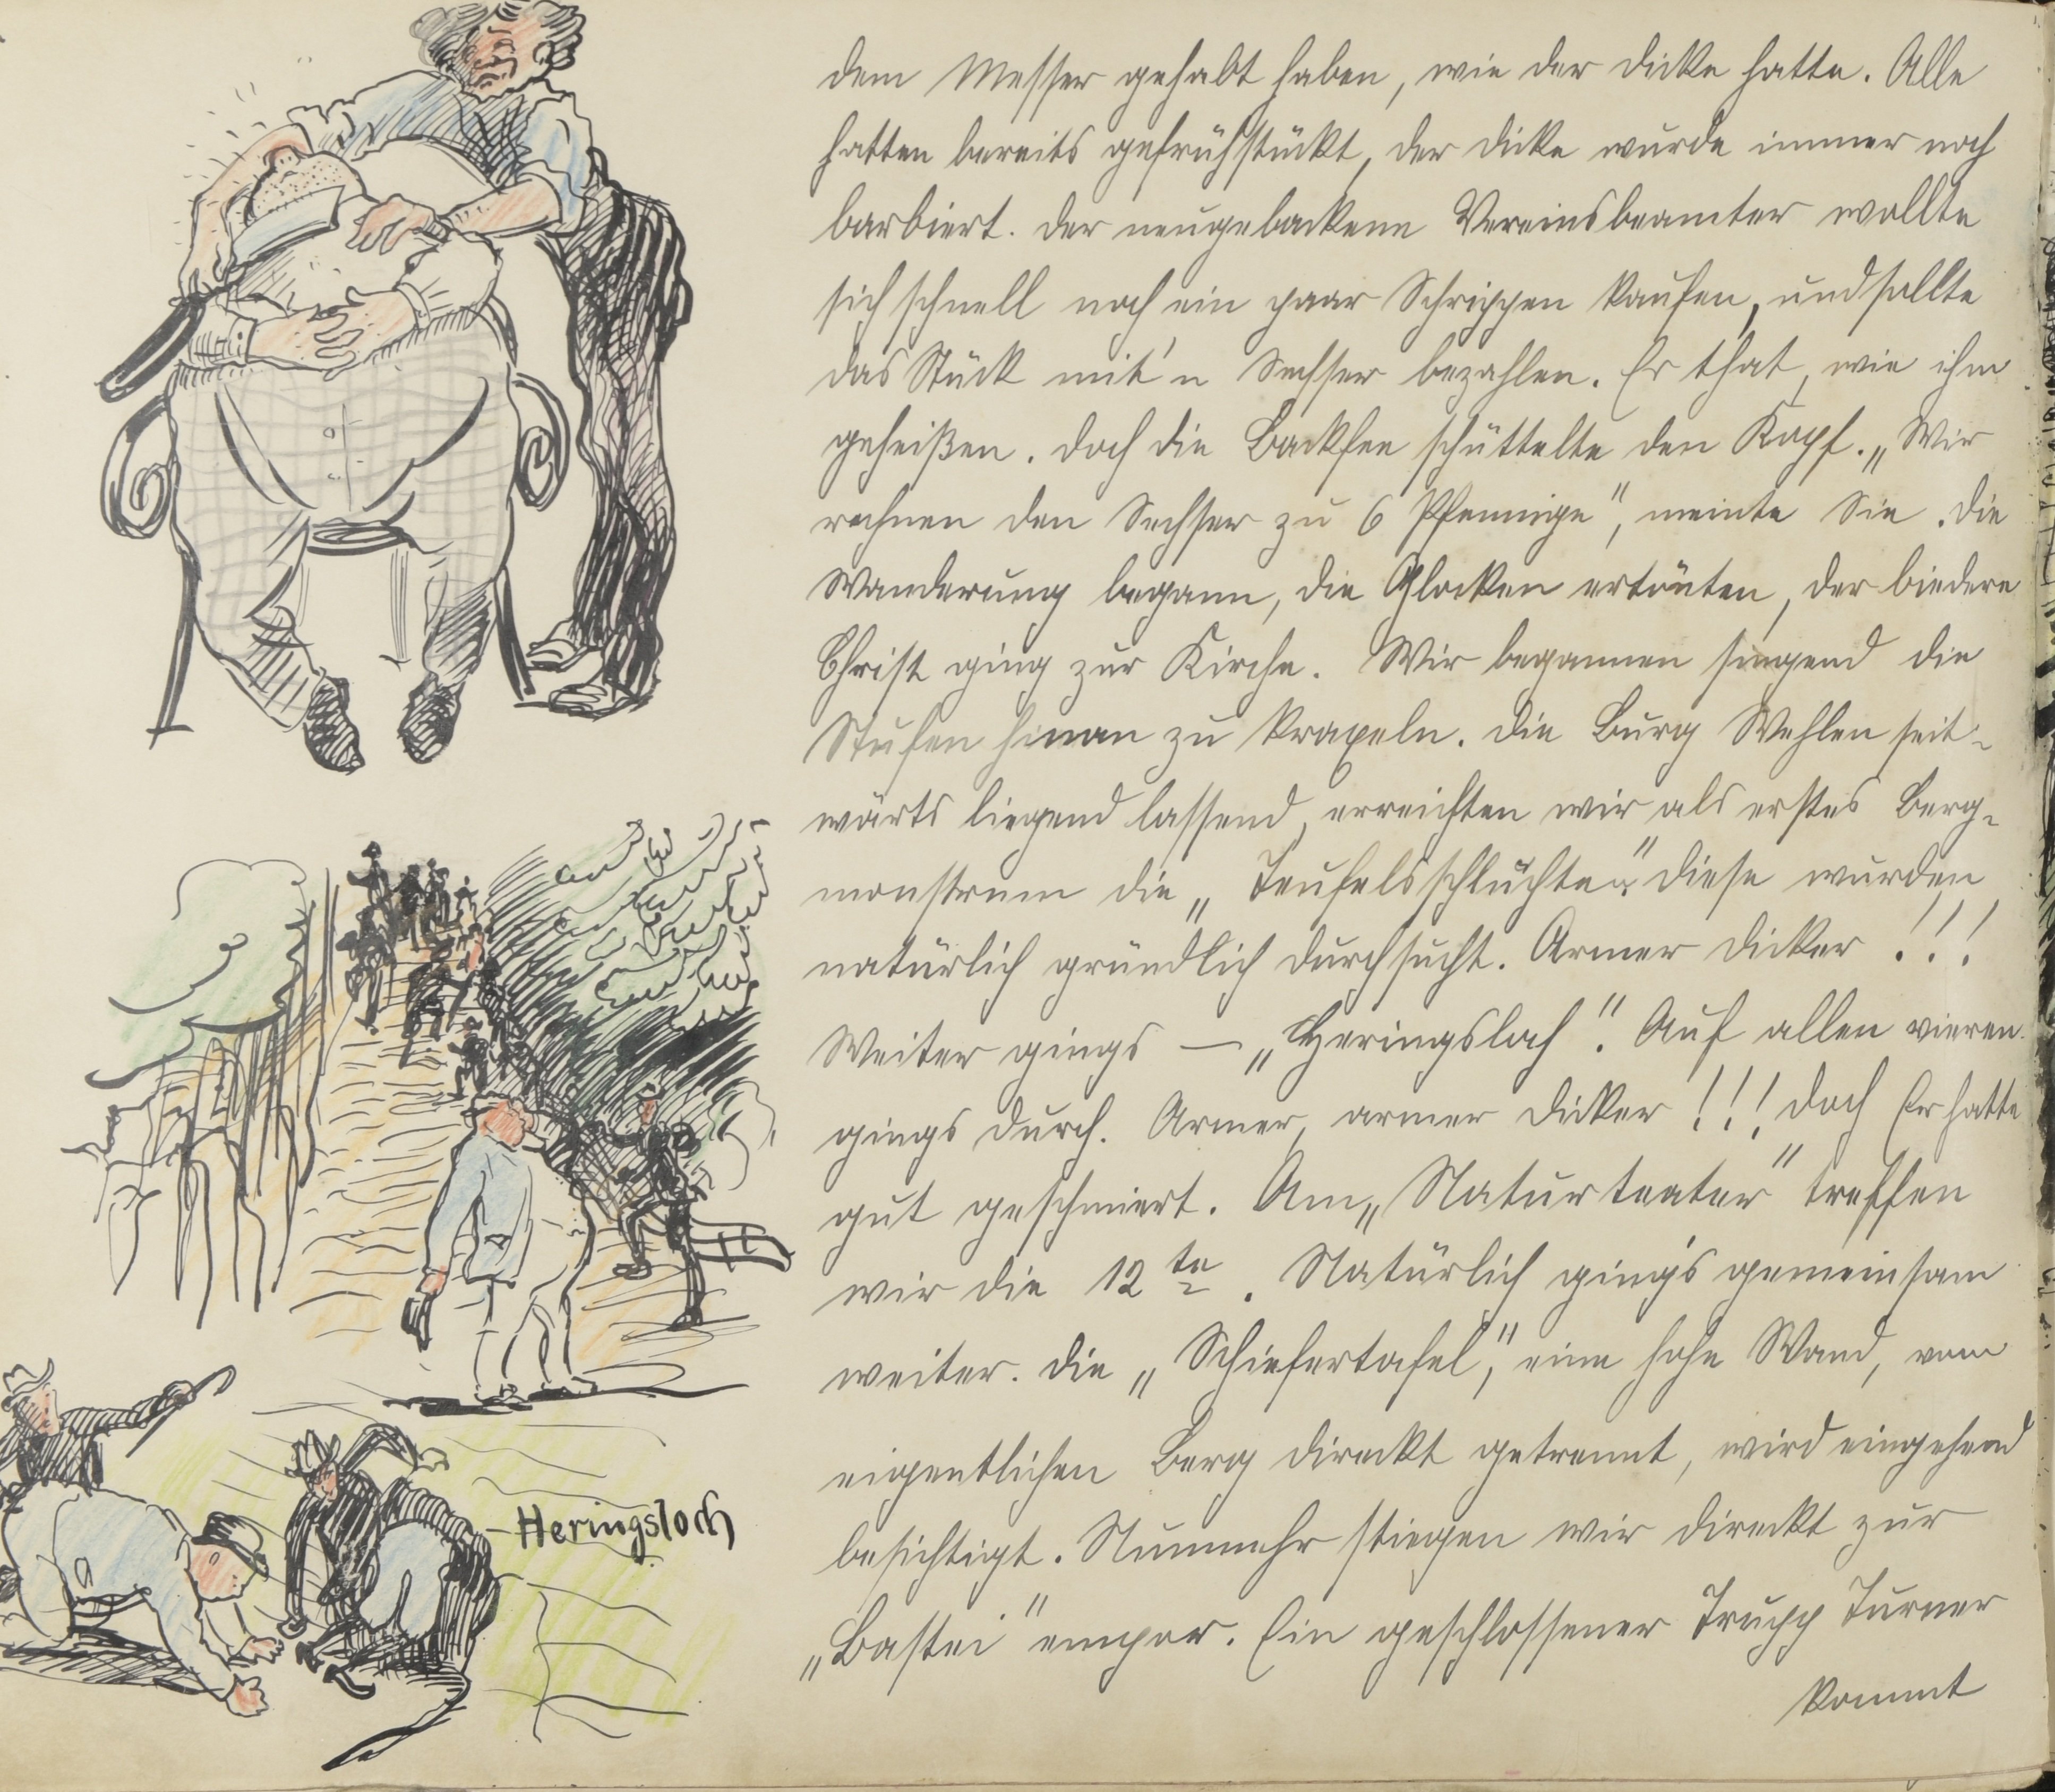 dem Messer gehabt haben, wie der Dicke hatte. Alle
hatten bereits gefrühstückt, der Dicke wurde immer noch
barbiert. Der neugebackene Vereinsbeamter wollte
sich schnell noch ein paar Schrippen kaufen, und sollte
das Stück mit'n Sechser bezahlen. Er that, wie ihm
geheißen. Doch die Backfee schüttelte den Kopf. „Wir
rechnen den Sechser zu 6 Pfennige", meinte Sie. Die
Wanderung begann, die Glocken ertönten, der biedere
Christ ging zur Kirche. Wir begannen singend die
Stufen hinan zu kraxeln. Die Burg Wehlen seit-
wärts liegend lassend, erreichten wir als erstes Berg-
monstrum die „Teufelsschlüchte". Diese wurden
natürlich gründlich durchsucht. Armer Dicker!!!
Weiter gings — „Heringsloch". Auf allen vieren
gings durch. Armer, armer Dicker!!! Doch Er hatte
gut geschmiert. Am „Naturteater" treffen
wir die 12te. Natürlich ging's gemeinsam
weiter. Die „Schiefertafel", eine hohe Wand, vom
eigentlichen Berg direckt getrennt, wird eingehend
besichtigt. Nunmehr stiegen wir direckt zur
„Bastei" empor. Ein geschlossener Trupp Turner
kommt
Heringsloch